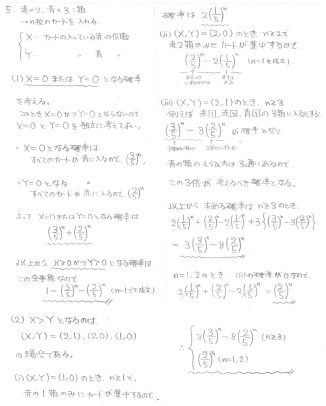 5. 赤×2, 青×3：箱
→ n枚のカードを入れる.
X… カードの入っている赤の個数
Y… 〃 青 〃
(1) X=0 または Y=0 となる確率
を考える.
このとき X=0 かつ Y=0 とならないので,
X=0 と Y=0 を独立に考えてよい.
・X=0となる確率は
すべてのカードが青に入るので, (3/5)^n.
・Y=0となる 〃
すべてのカードが赤に入るので, (2/5)^n
よって X=0またはY=0となる確率は
(3/5)^n + (2/5)^n
以上から, X>0かつY>0となる確率は
この余事象なので
1 - (3/5)^n - (2/5)^n (n=1でも成立)
(2) X>Y となるのは,
(X,Y) = (2,1), (2,0), (1,0)
の場合である.
(i) (X,Y)=(1,0) のとき, n≥1で,
赤の1箱のみにカードが集中するので,
確率は 2(1/5)^n
(ii) (X,Y)=(2,0) のとき n≥2で
赤2箱のみにカードが集中するので,
(2/5)^n - 2(1/5)^n (n=1でも成立)
(iii) (X,Y)=(2,1)のとき, n≥3
例えば 赤1, 赤2, 青1 の3箱に入るとすると
(3/5)^n - 3(2/5)^n
青の箱のえらび方は3通りあるので,
この3倍が考えるべき確率となる.
以上から 求める確率は n≥3のとき,
= 3(3/5)^n - 8(2/5)^n
n=1,2のとき, (iii)の確率が0なので,
2(1/5)^n + (2/5)^n - 2(1/5)^n = (2/5)^n
∴ 3(3/5)^n - 8(2/5)^n (n≥3)
(2/5)^n (n=1,2)